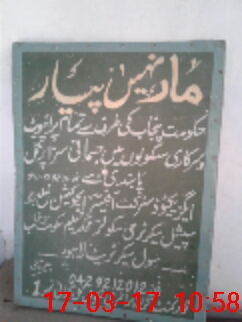 مار نہیں پیار
حکومت پنجاب کی طرف سے تمام پرائیویٹ
و سرکاری سکولوں میں جسمانی سزا پر مکمل
پابندی ہے
ایگزیکٹو ڈسٹرکٹ آفیسر ایجوکیشن
سپیشل سیکرٹری سکولز محکمہ تعلیم حکومت پنجاب
سول سیکرٹریٹ لاہور
042-9212012
17-03-17 10:58